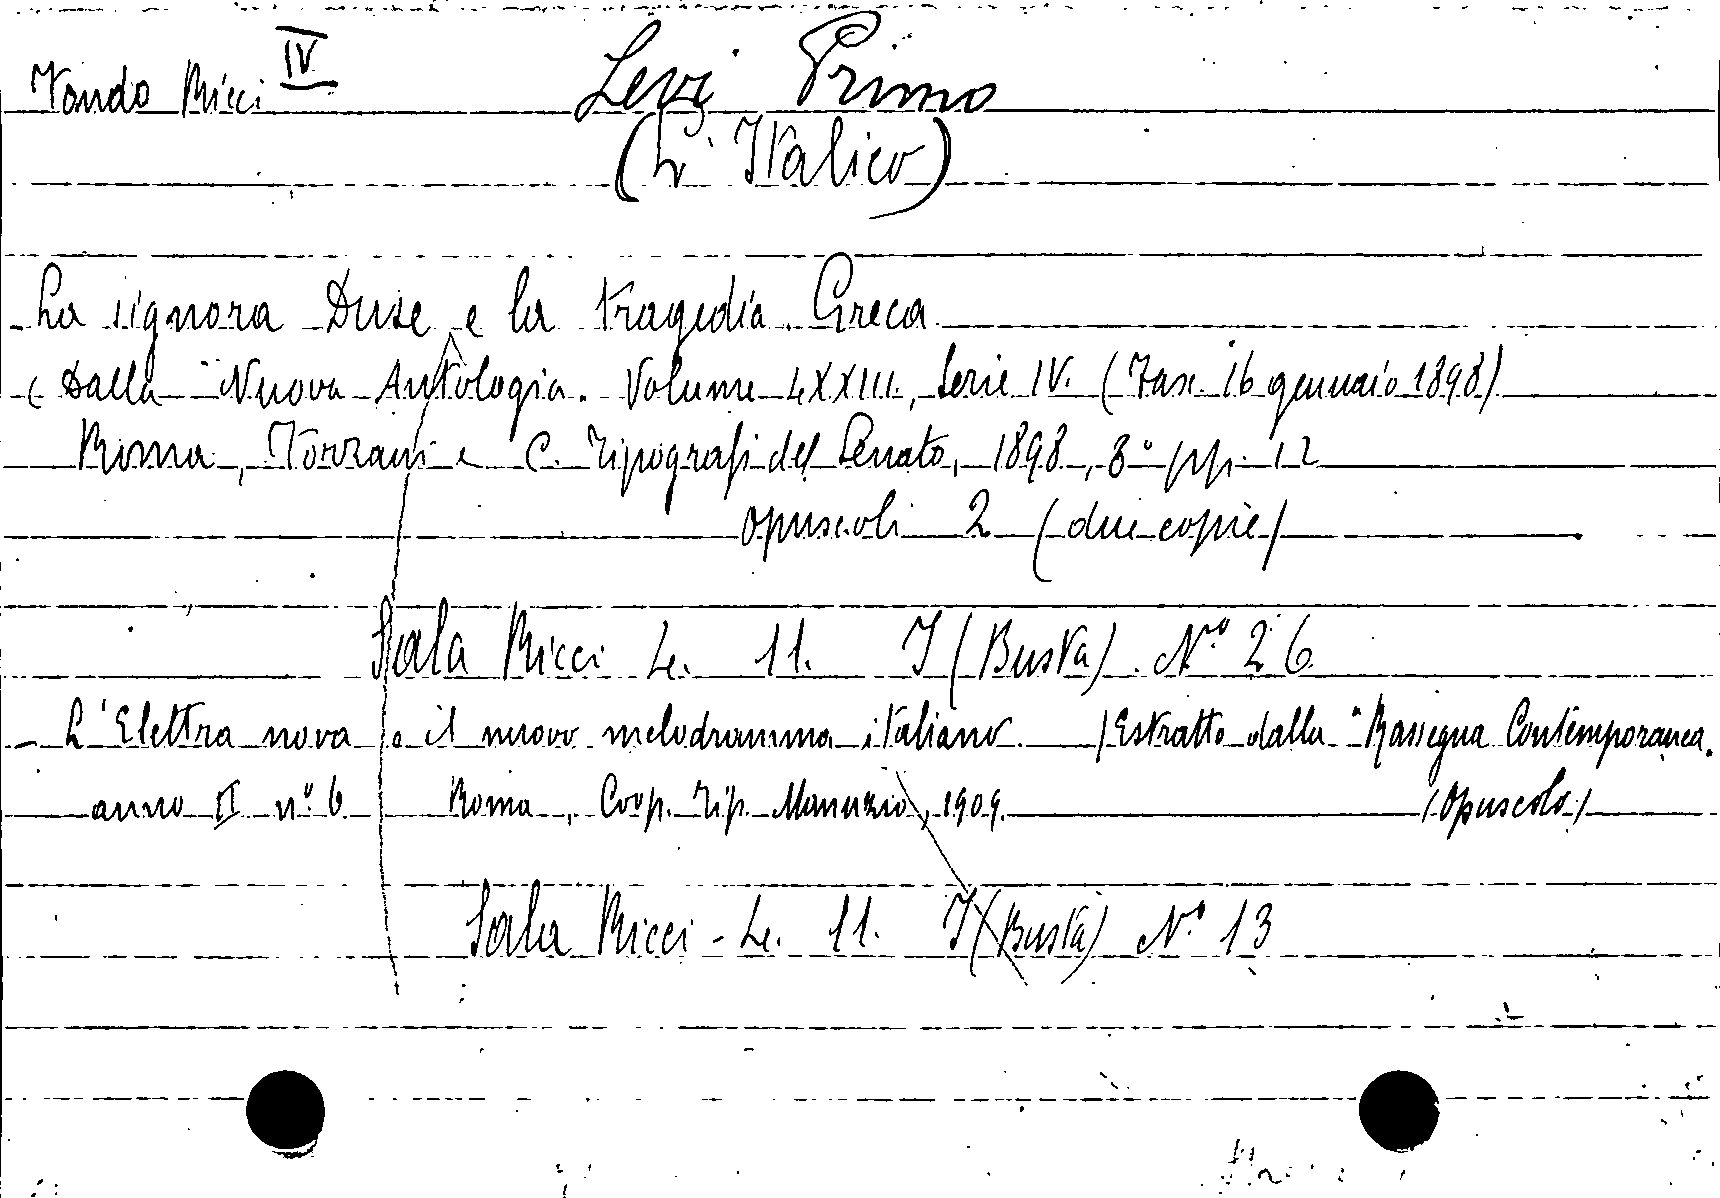 Fondo Ricci IV
Levi Primo
(L'Italico)
- La signora Duse e la tragedia Greca
( Dalla "Nuova Antologia. Volume LXXIII, Serie IV. (Fasc. 16 gennaio 1898)
Roma, Forzani e C. Tipografi del Senato, 1898, 8° pp. 12
opuscoli 2 (due copie)
Sala Ricci Le. 11. I (Busta) N.° 26
- L'Elettra nova e il nuovo melodramma italiano (Estratto dalla "Rassegna Contemporanea.
anno II n.° 6 Roma, Coop. Tip. Manuzio, 1909. (Opuscolo)
Sala Ricci - Le. 11. I (Busta) N.° 13